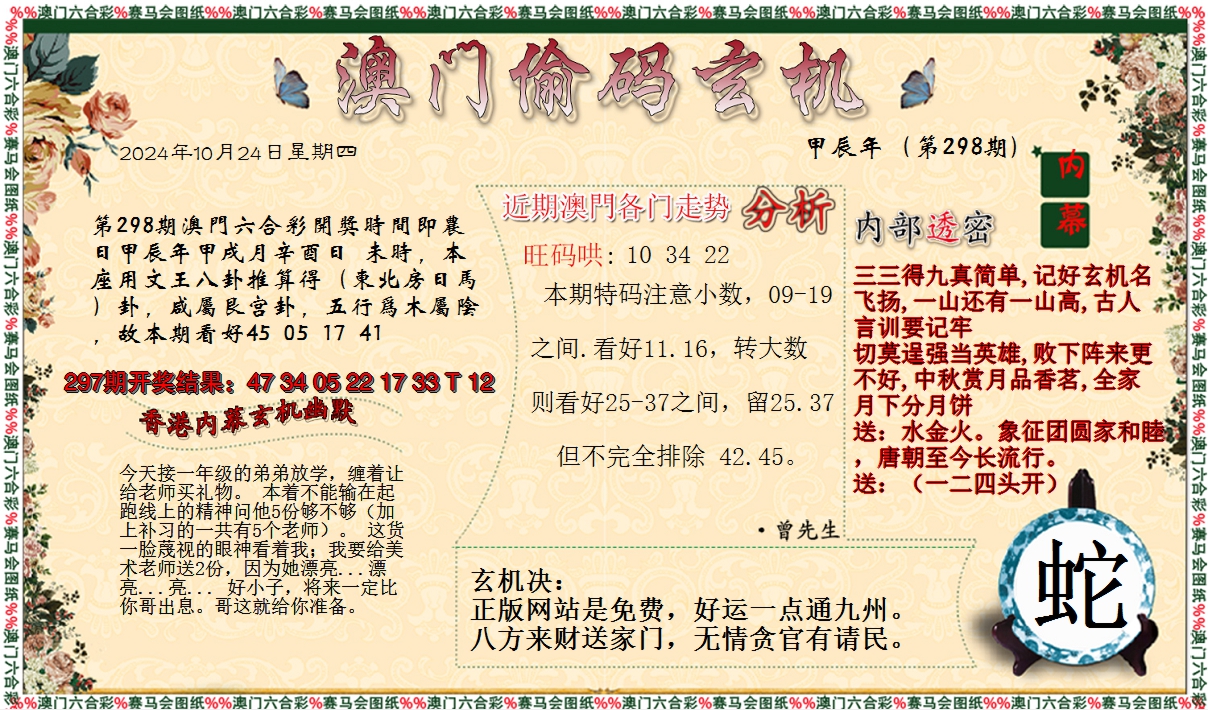 %%澳门六合彩%赛马会图纸%%澳门六合彩%赛马会图纸%%澳门六合彩%赛马会图纸%%澳门六合彩%赛马会图纸%%澳门六合彩%赛马会图纸%%澳门六合彩%赛马会图纸%%
澳门偷码玄机
2024年10月24日星期四
甲辰年（第298期）
第298期澳門六合彩開獎時間即農
日甲辰年甲戌月辛酉日 未時，本
座用文王八卦推算得（東北房日馬
）卦，咸屬艮宫卦，五行爲木屬陰
，故本期看好45 05 17 41
297期开奖结果：47 34 05 22 17 33 T 12
香港内幕玄机幽默
今天接一年级的弟弟放学，缠着让
给老师买礼物。 本着不能输在起
跑线上的精神问他5份够不够（加
上补习的一共有5个老师）。 这货
一脸蔑视的眼神看着我；我要给美
术老师送2份，因为她漂亮...漂
亮...亮... 好小子，将来一定比
你哥出息。哥这就给你准备。
近期澳門各门走势 分析
旺码哄: 10 34 22
本期特码注意小数，09-19
之间.看好11.16，转大数
则看好25-37之间，留25.37
但不完全排除 42.45。
·曾先生
玄机决：
正版网站是免费，好运一点通九州。
八方来财送家门，无情贪官有请民。
内幕
内部透密
三三得九真简单,记好玄机名
飞扬,一山还有一山高,古人
言训要记牢
切莫逞强当英雄,败下阵来更
不好,中秋赏月品香茗,全家
月下分月饼
送：水金火。象征团圆家和睦
，唐朝至今长流行。
送：（一二四头开）
蛇
%%澳门六合彩%赛马会图纸%%澳门六合彩%赛马会图纸%%澳门六合彩%赛马会图纸%%澳门六合彩%赛马会图纸%%澳门六合彩%赛马会图纸%%澳门六合彩%赛马会图纸%%